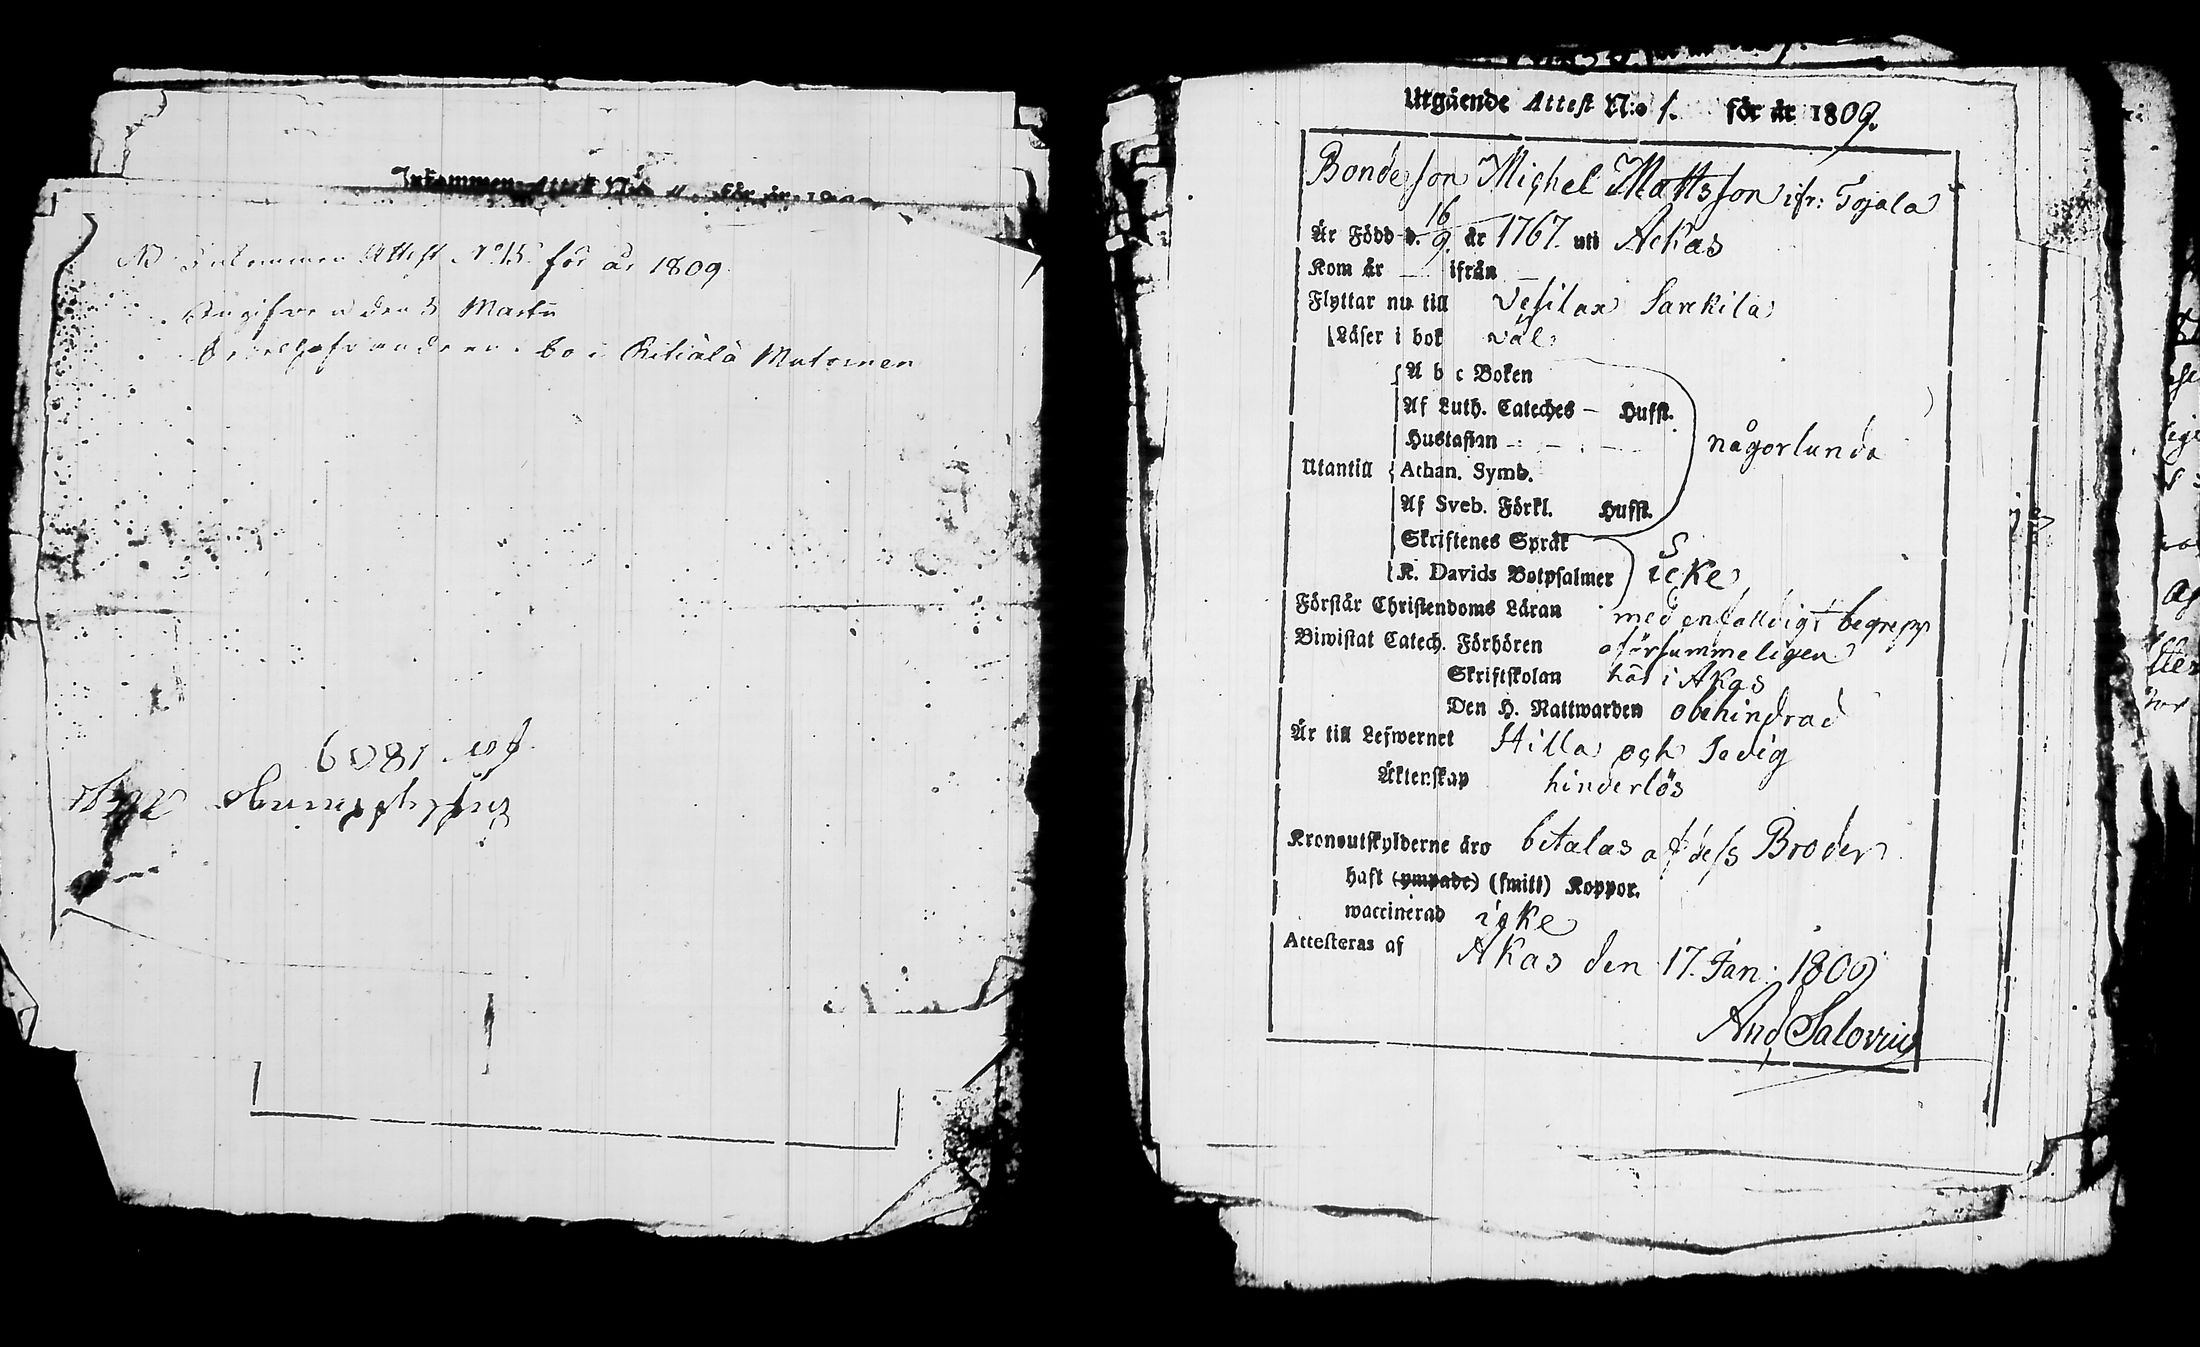 Inkommen Attest N:o för år
Inkommen Attest No 15 för år 1809
den 3 Martii
bo i Ritiälä Mutoinen
1809
Utgående Attest N:o 1. för år 1809.
Bondeson Michel Mattsson ifr: Tojala
Är Född d. 16/9. år 1767. uti Ackas
Kom år — ifrån —
Flyttar nu till Vesilax Sarckila
Läser i bok väl
A b c Boken
Af Luth. Cateches — Hufst.
Hustaflan
någorlunda
Utantill Athan. Symb.
Af Sveb. Förkl. Hufst.
Skriftenes Språk
K. Davids Botpsalmer icke
Förstår Christendoms Läran med enfaldigt begrepp
Biwistat Catech. Förhören oförsummeligen
Skriftskolan här i Akas
Den H. Nattwarden obehindrad
Är till Lefwernet Stilla och Sedig
Äktenskap hinderlös
Kronoutskylderne äro betalas af dess Broder
haft (ympade) (smitt) Koppor.
waccinerad icke
Attesteras af Akas den 17. Jan: 1809
And Salovius